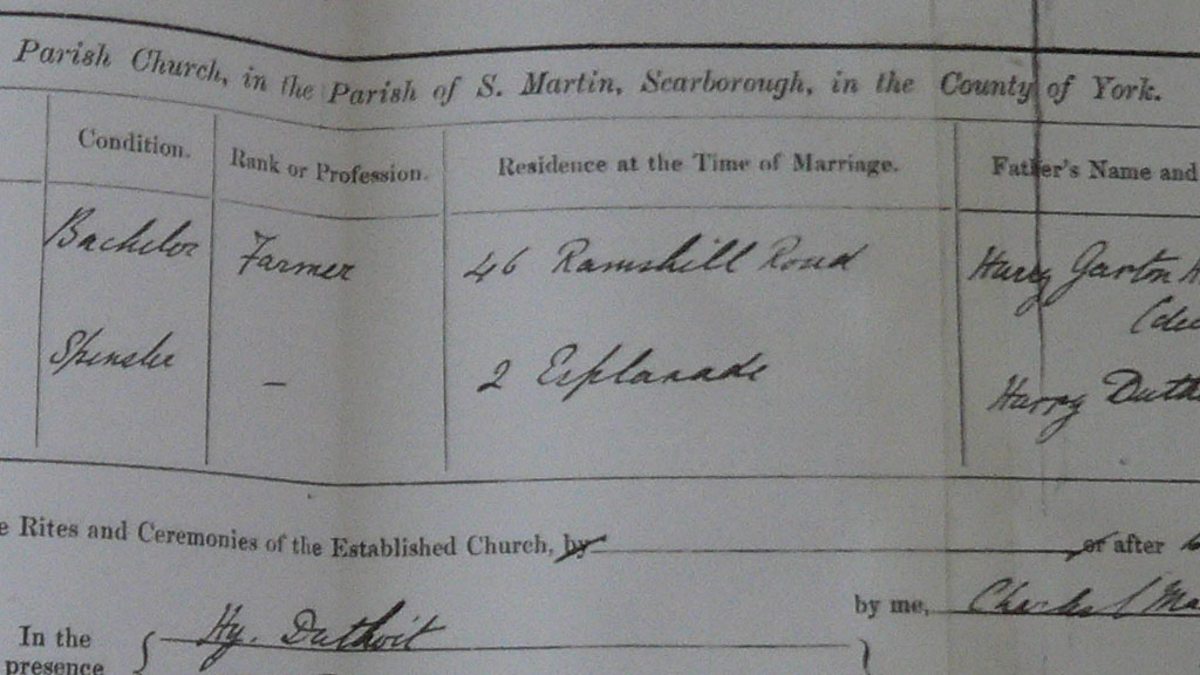 Parish Church, in the Parish of S. Martin, Scarborough, in the County of York.
Condition. Rank or Profession. Residence at the Time of Marriage. Father's Name and
Bachelor Farmer 46 Ramshill Road Harry Garton
Spinster – 2 Esplanade Harry
Rites and Ceremonies of the Established Church, by or after
by me, Charles
Hy. Duthoit
In the
presence